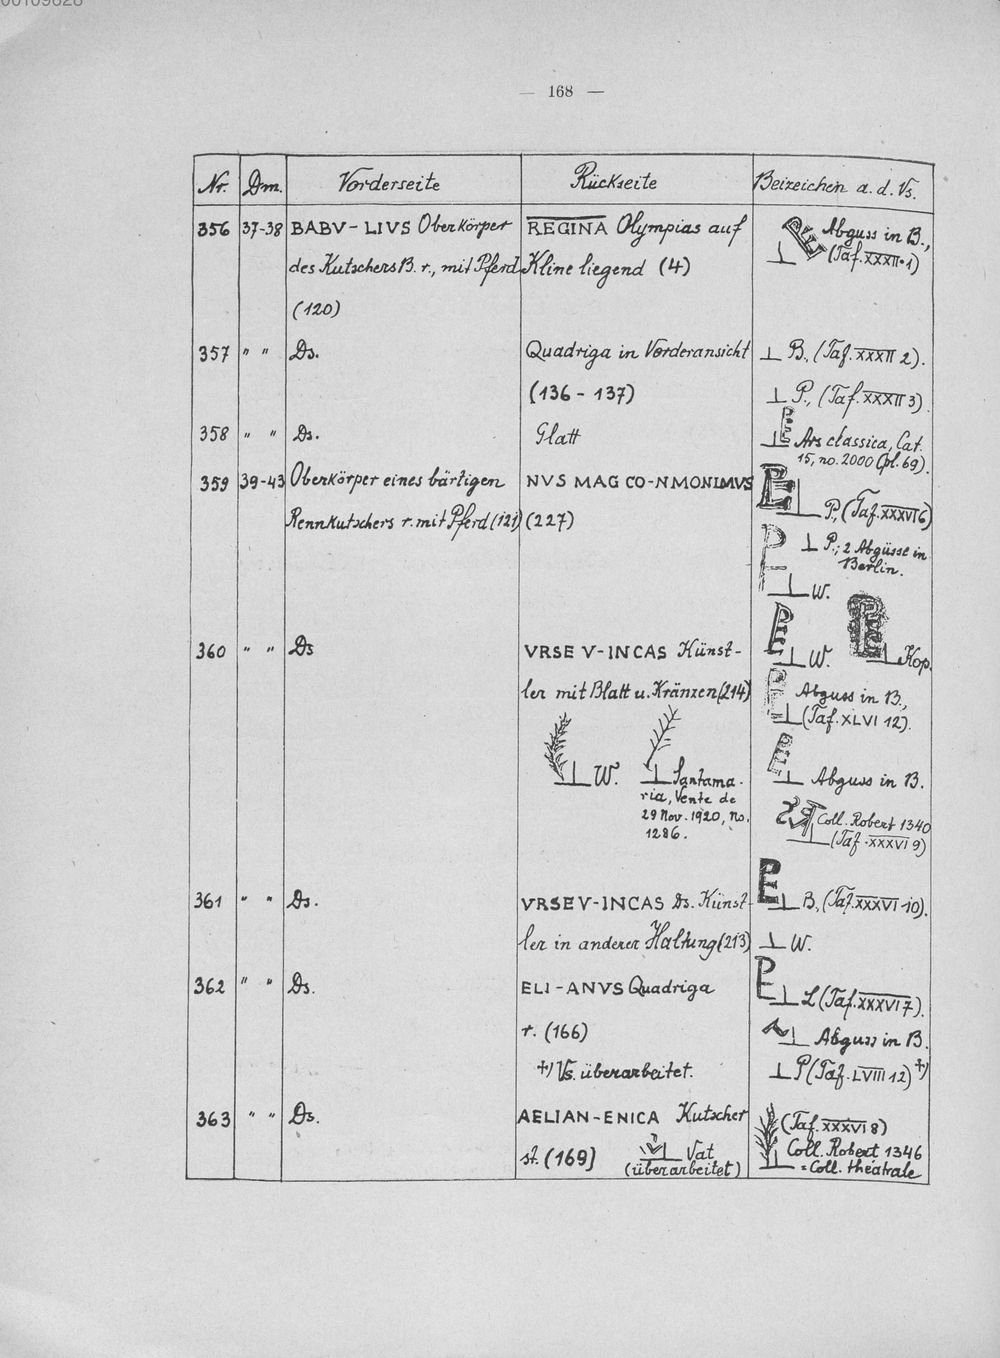 00109828
— 168 —
Nr. Dm. Vorderseite Rückseite Beizeichen a. d. Vs.
356 37-38 BABV - LIVS Oberkörper
des Kutschers B. r., mit Pferd
(120)
REGINA Olympias auf
Kline liegend (4)
PE Abguss in B.,
(Taf. XXXII 1)
357 " " Ds.
Quadriga in Vorderansicht
(136 - 137)
B., (Taf. XXXII 2).
P., (Taf. XXXII 3).
358 " " Ds.
Glatt
PE Ars classica, Cat.
15, no. 2000 (pl. 69).
359 39-43 Oberkörper eines bärtigen
Rennkutschers r. mit Pferd (121)
NVS MAG CO-NMONIMVS
(227)
PE P., (Taf. XXXVI 6)
P.; 2 Abgüsse in
Berlin.
W.
360 " " Ds
VRSE V-INCAS Künst-
ler mit Blatt u. Kränzen (214)
W.
Santama-
ria, Vente de
29 Nov. 1920, no.
1286.
PE W.
PE Kop.
PE Abguss in B.,
(Taf. XLVI 12).
PE Abguss in B.
Coll. Robert 1340
(Taf. XXXVI 9)
361 " " Ds.
VRSEV-INCAS Ds. Künst-
ler in anderer Haltung (213)
PE B., (Taf. XXXVI 10).
W.
362 " " Ds.
ELI - ANVS Quadriga
r. (166)
+) Vs. überarbeitet.
PE L (Taf. XXXVI 7).
Abguss in B.
P (Taf. LVIII 12) +)
363 " " Ds.
AELIAN-ENICA Kutscher
st. (169)
Vat
(überarbeitet)
(Taf. XXXVI 8)
Coll. Robert 1346
= Coll. théatrale